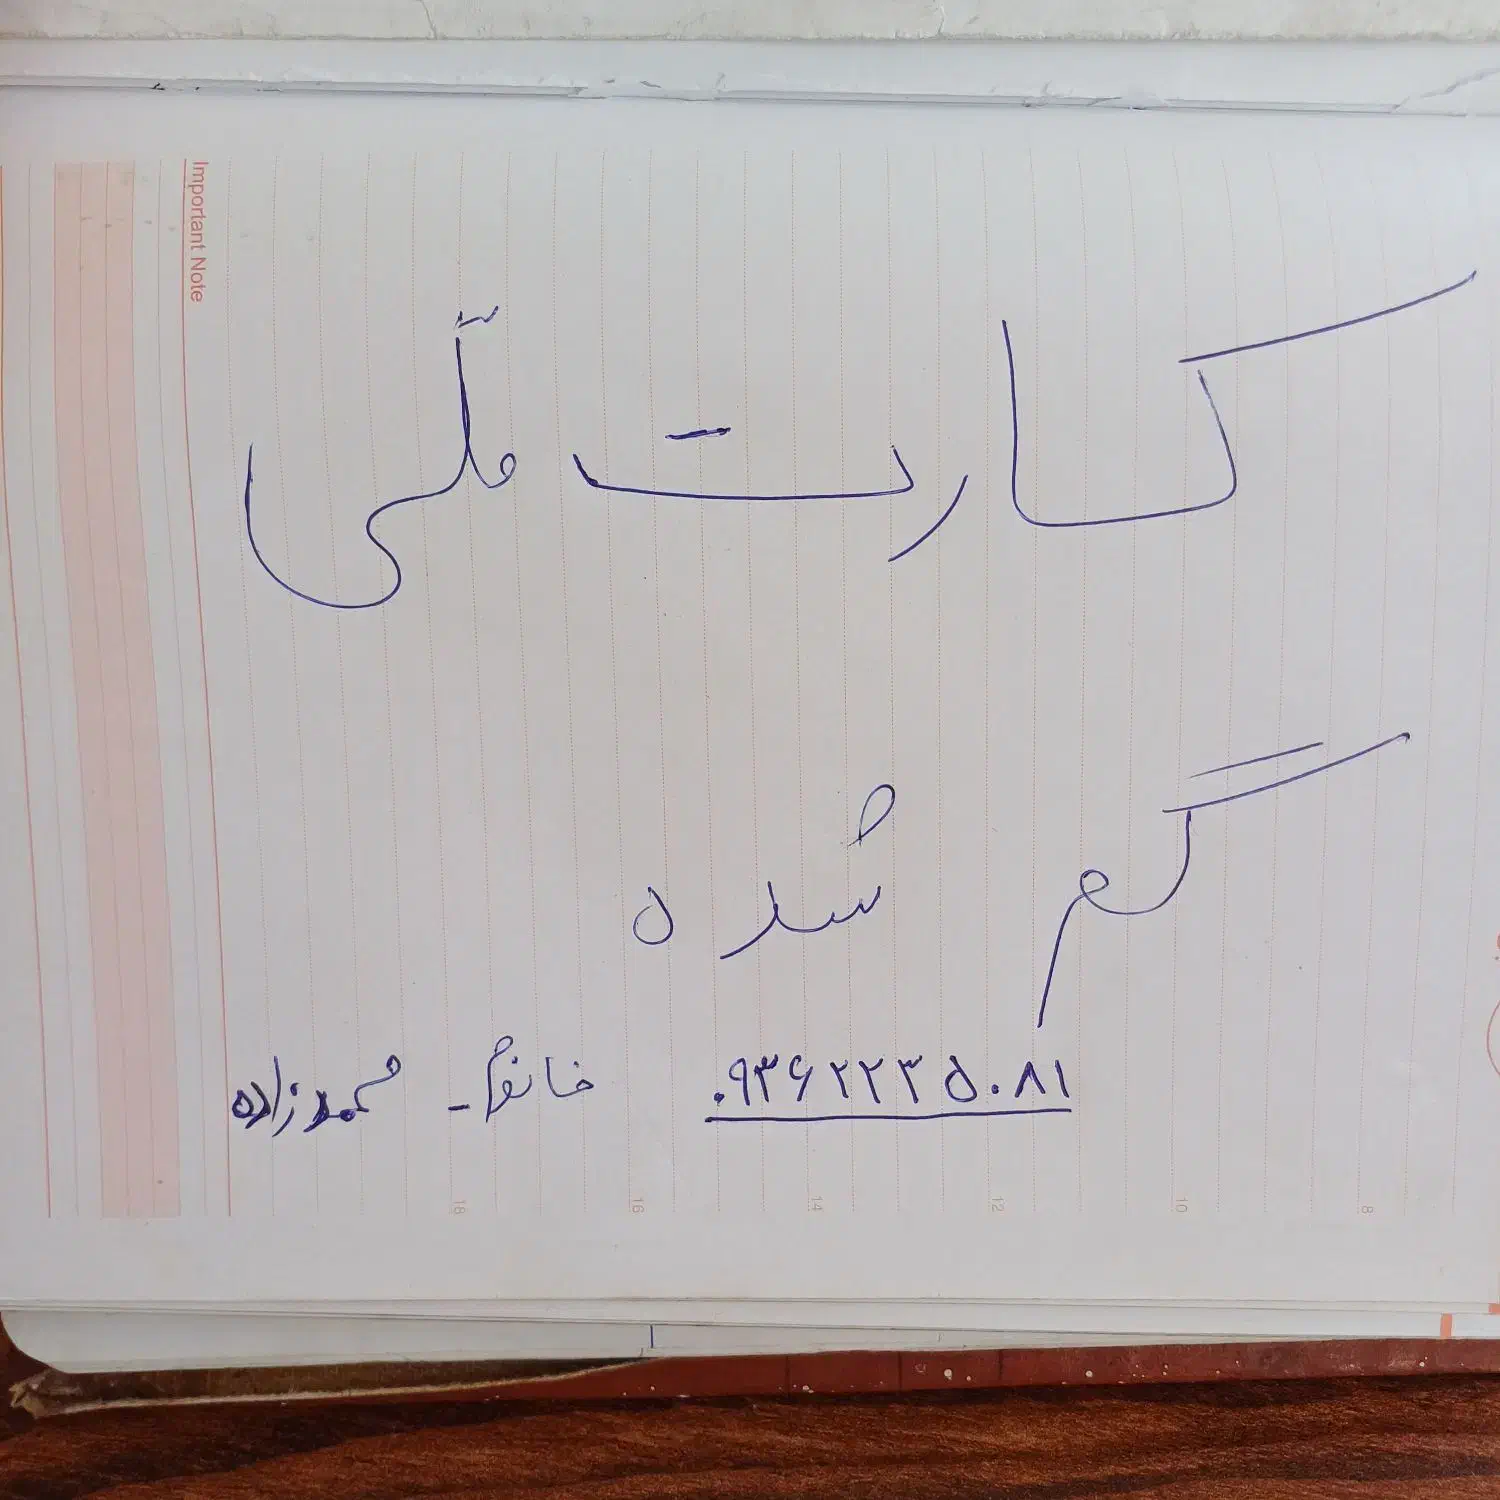 Important Note
کارت ملّی
گم شده
۰۹۳۶۲۲۳۵۰۸۱ خانم - محمدزاده
18 16 14 12 10 8